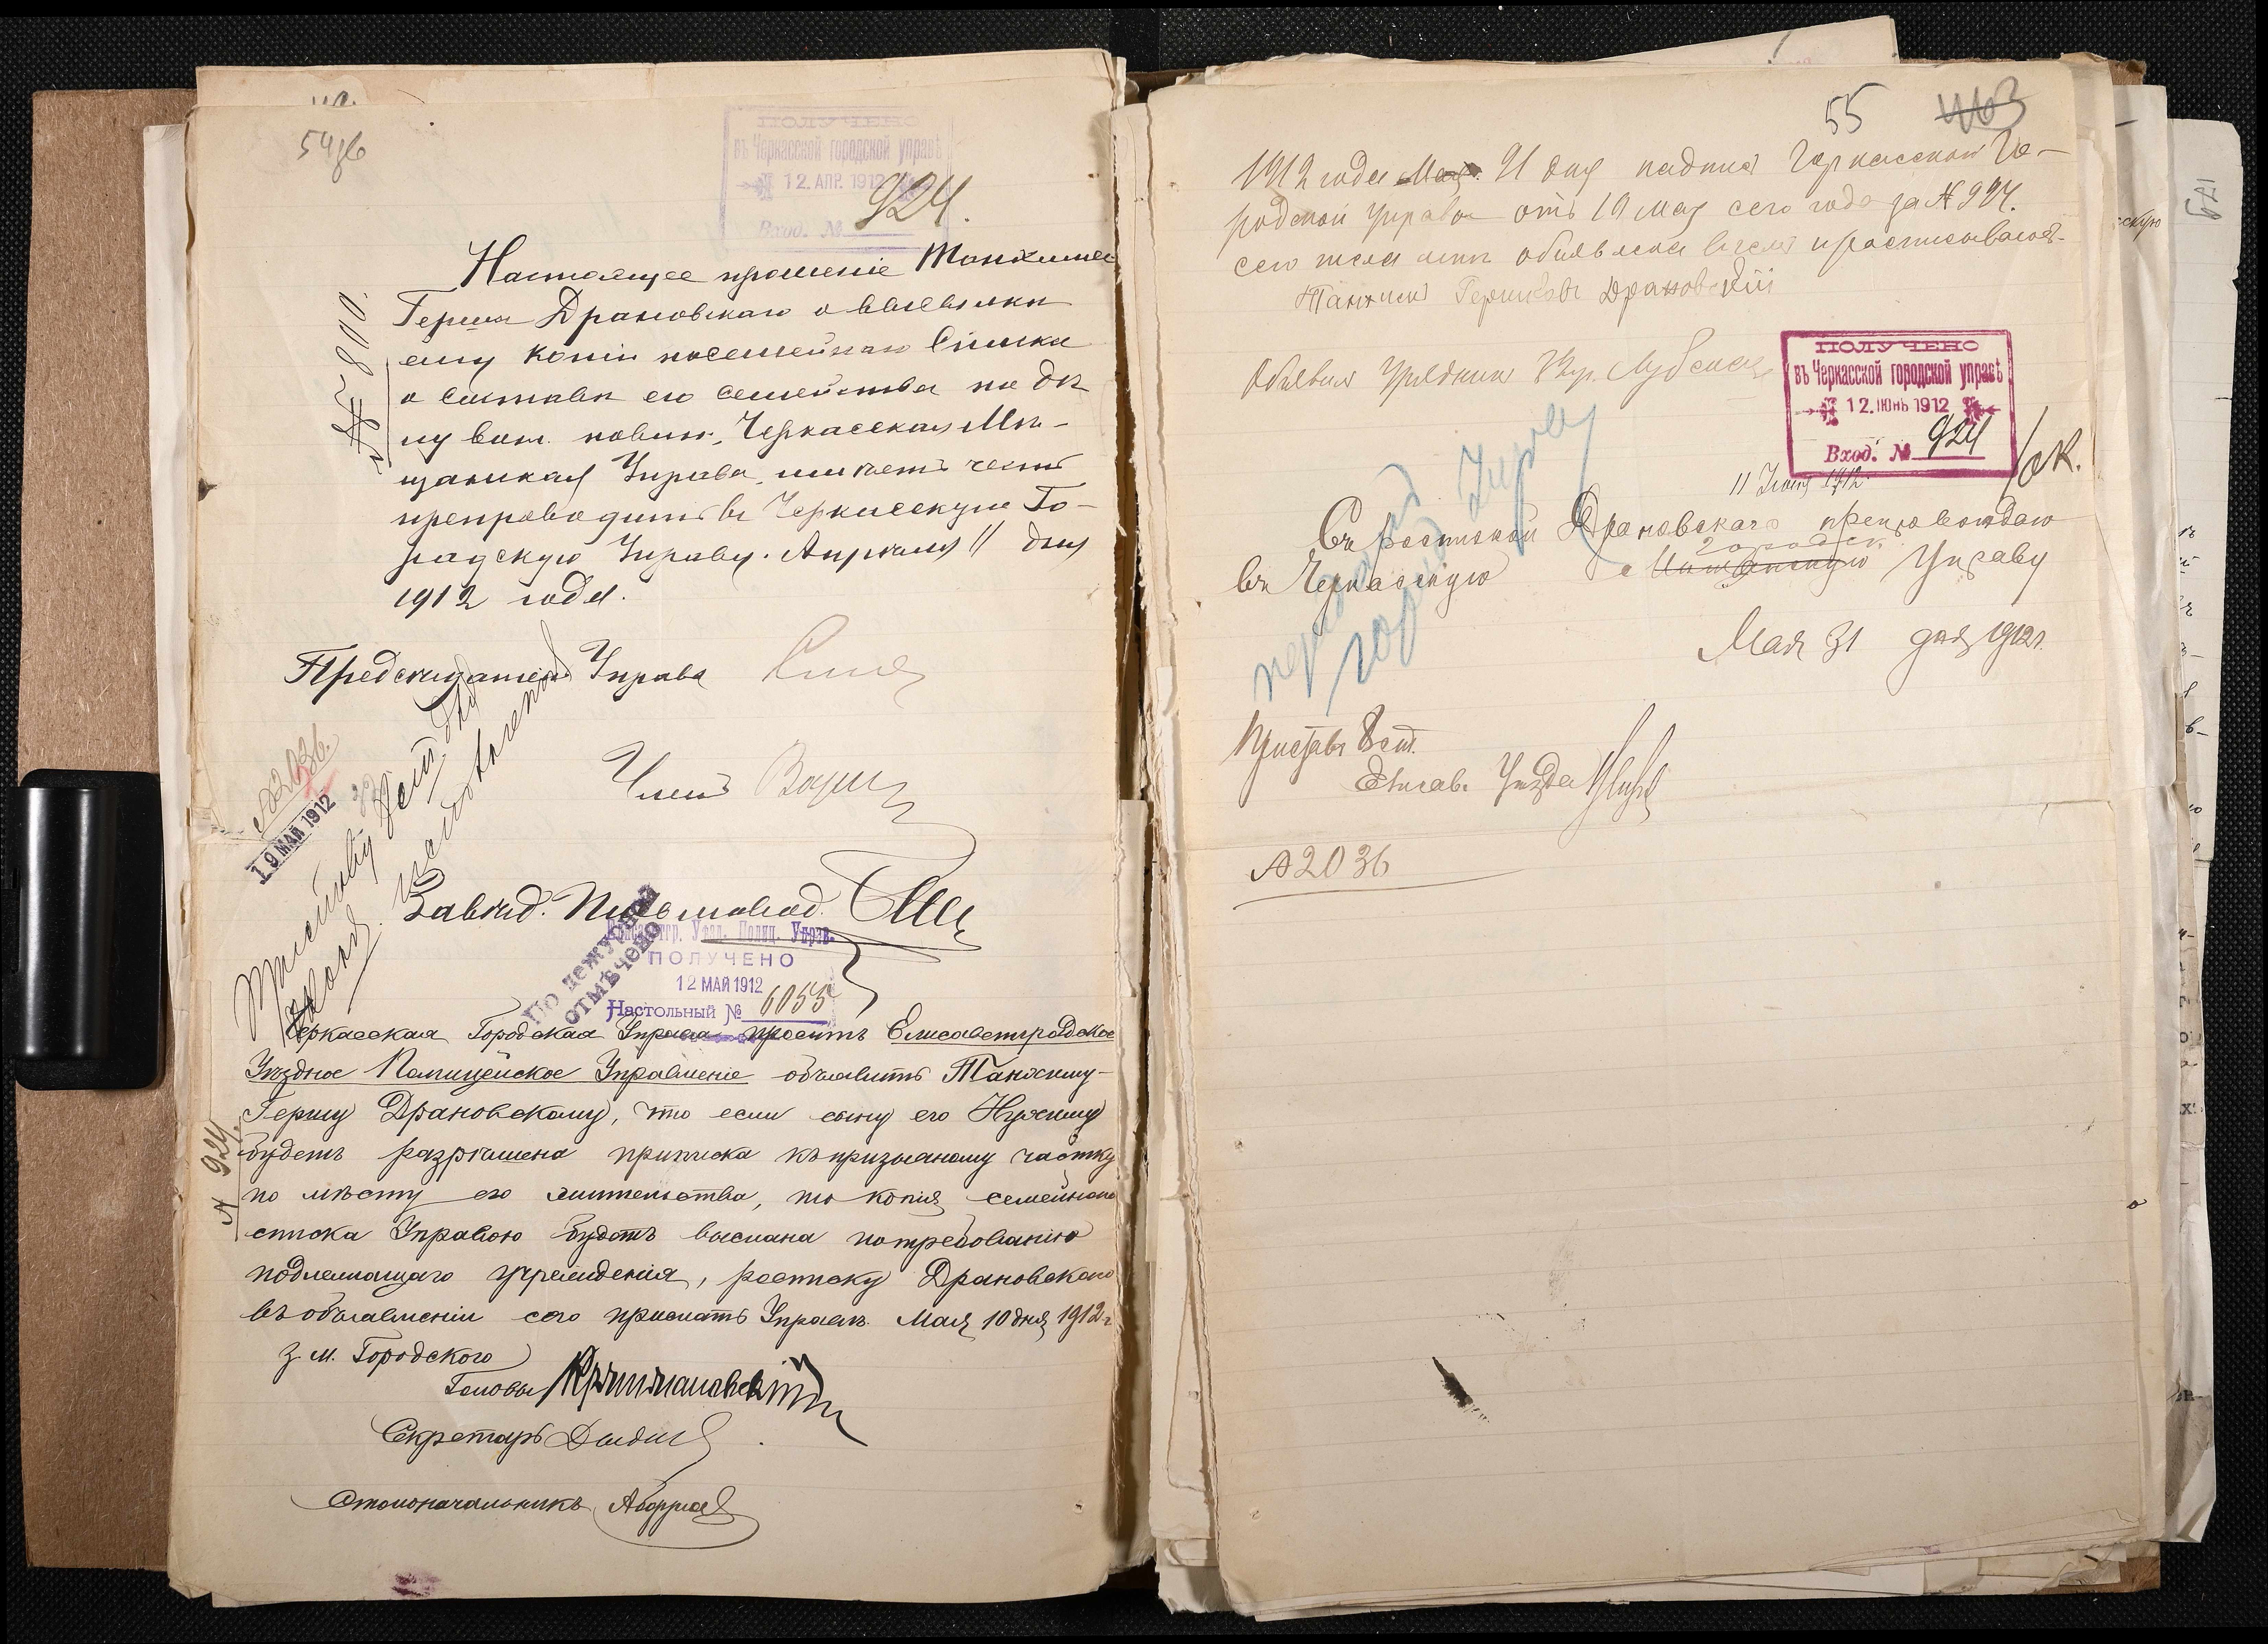 54 об
ПОЛУЧЕНО
въ Черкасской городской управѣ
12. АПР. 1912
Вход. № 924.
№ 800.
Настоящее прошеніе Танхима
Герша Драновскаго о высылкѣ
ему копіи посемейнаго списка
о составѣ его семейства по дѣ
лу воин. повин., Черкасская Мѣ-
щанская Управа имѣетъ честь
препроводить въ Черкасскую Го-
родскую Управу. Апрѣля 11 дня
1912 года.
Предсѣдатель Управы
Членъ
Завѣд. Письмовод.
№ 2036.
19 МАЙ 1912
Приставу
По дежурной
отмѣчено
Елисаветгр. Уѣзд. Полиц. Управ.
ПОЛУЧЕНО
12 МАЙ 1912
Настольный № 6055
№ 924.
Черкасская Городская Управа проситъ Елисаветградское
Уѣздное Полицейское Управленіе объявить Танхиму-
Гершу Драновскому, что если сыну его Нухиму
будетъ разрѣшена приписка къ призывному участку
по мѣсту его жительства, то копія семейнаго
списка Управою будетъ выслана по требованію
подлежащаго учрежденія, росписку Драновскаго
въ объявленіи сего прислать Управѣ. Мая 10 дня 1912 г
з. м. Городского
Головы
Секретарь
Столоначальникъ
55 463
1912 года Мая 21 дня надпись Черкасской Го-
родской Управы отъ 10 мая сего года за № 924.
сего числа мнѣ объявлена въ чемъ и росписываюсь
Танхимъ Гершковъ Драновскій
Объявилъ Урядникъ
ПОЛУЧЕНО
въ Черкасской городской управѣ
12. ІЮНЬ 1912
Вход. № 924
11 Іюня 1912
Съ роспиской Драновскаго препровождаю
городск.
въ Черкасскую Мѣщанскую Управу
Мая 31 дня 1912 г.
Приставъ 8 ст.
Елисав. Уѣзда
№ 2036